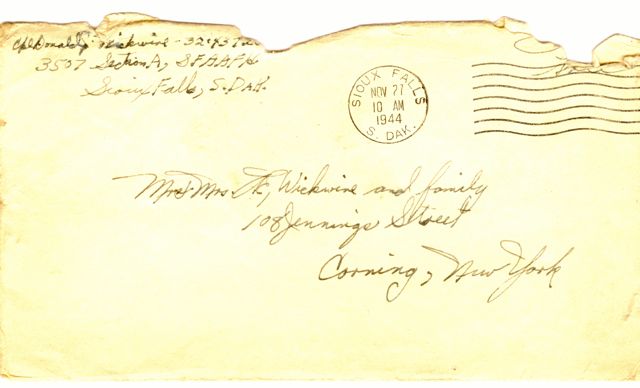 Cpl Donald S. Wickwire - 32
3507 Section A, SFAAFA
Sioux Falls, S. Dak.
SIOUX FALLS
NOV 27
10 AM
1944
S. DAK.
Free
Mr. & Mrs. Wickwire and family
108 Jennings Street
Corning, New York